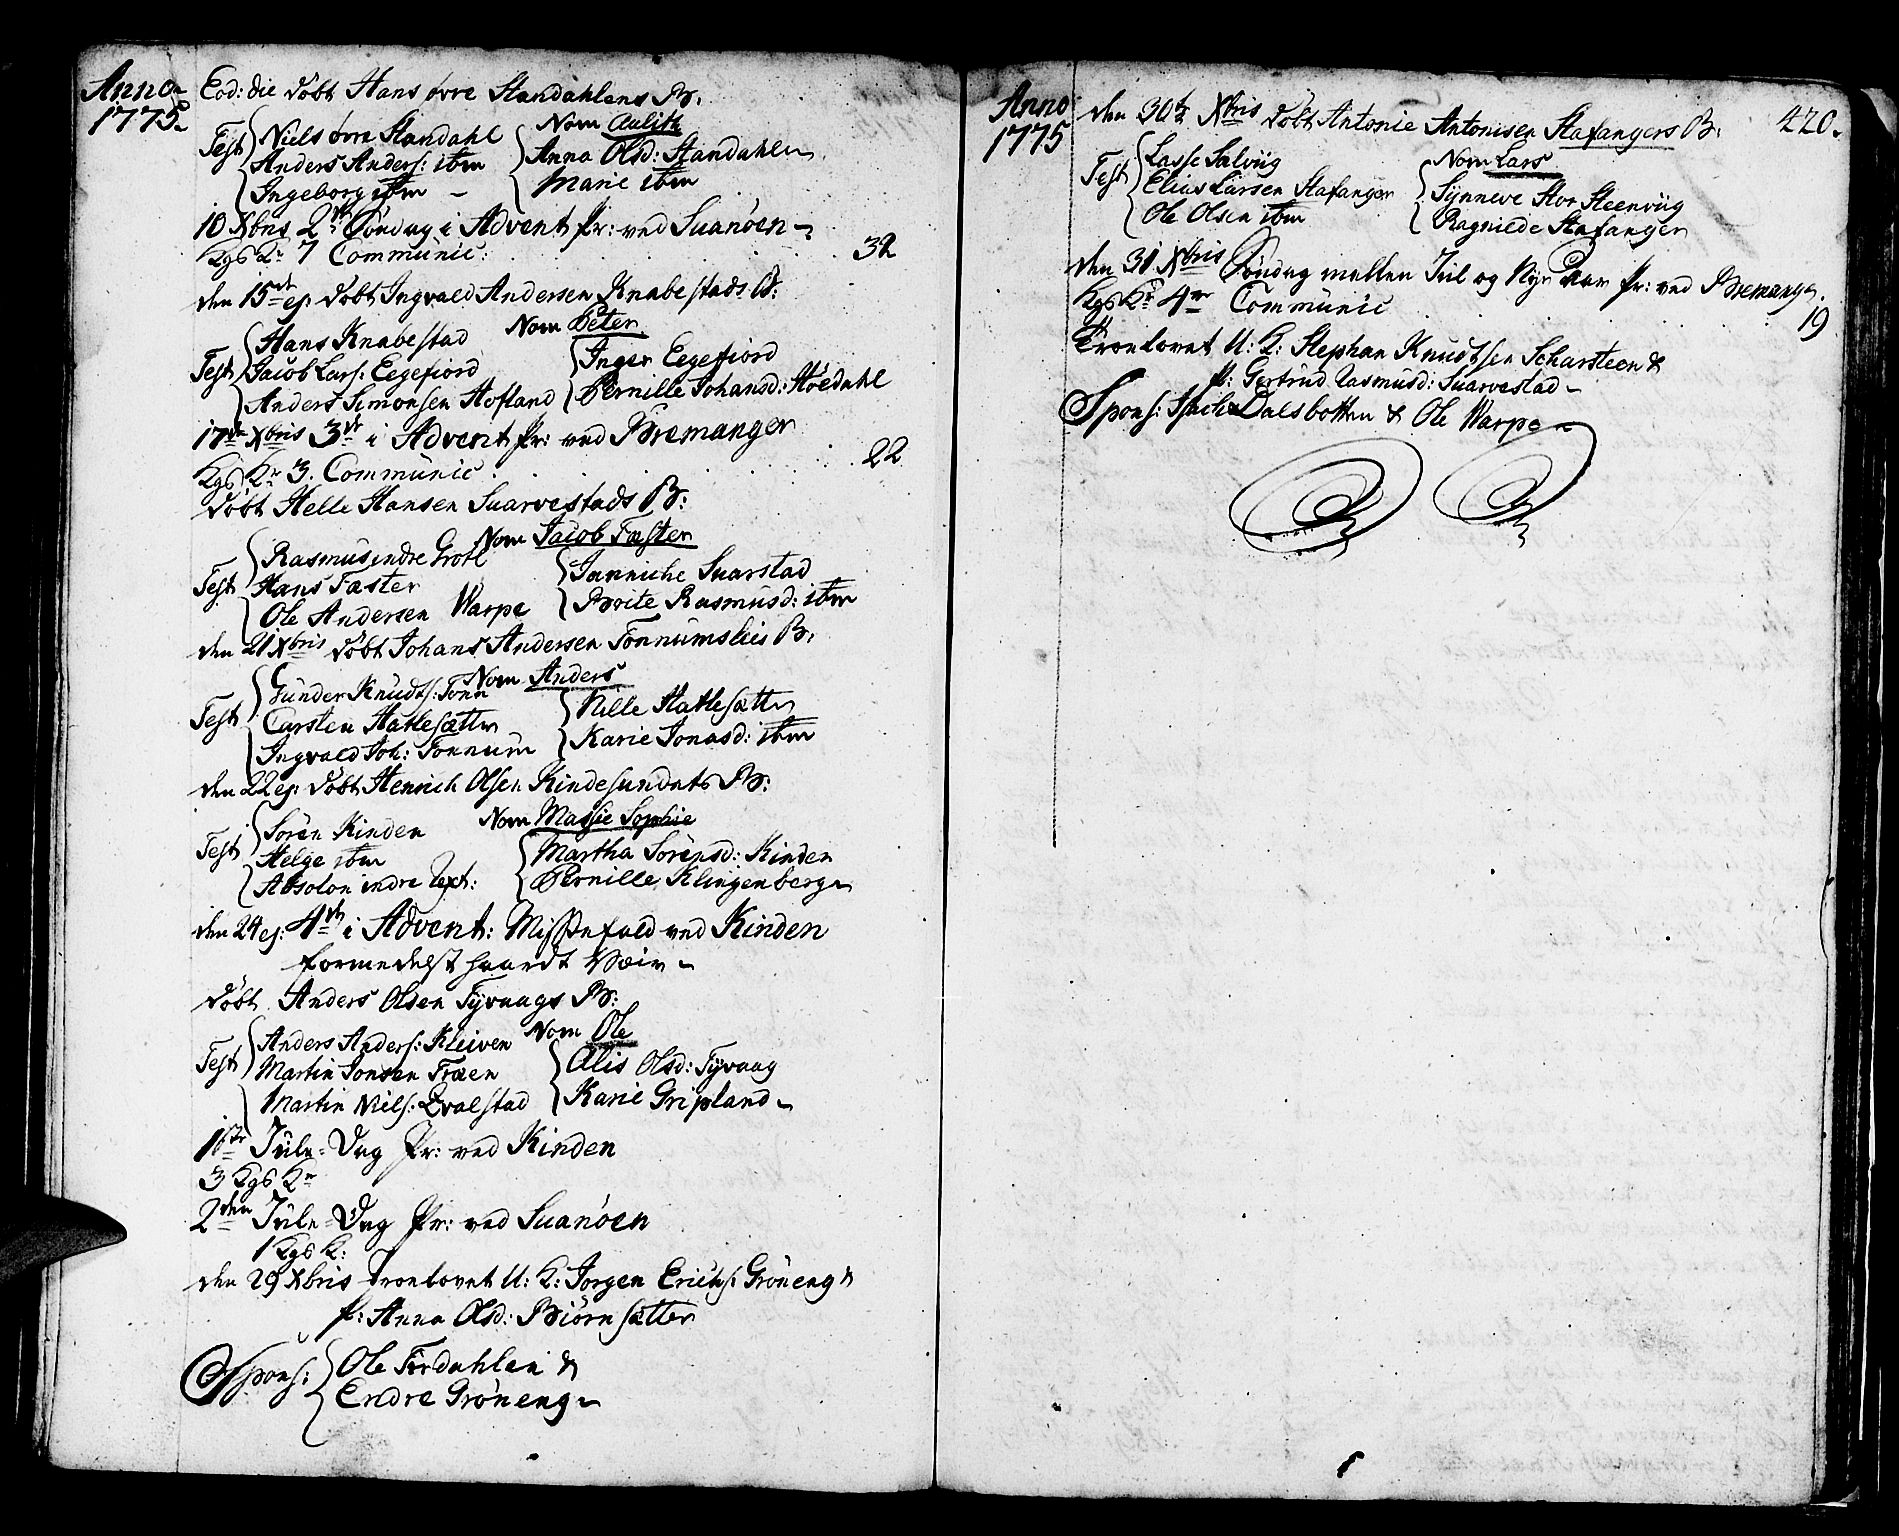 Anno 1775.
Eod: die döbt Hans övre Standahlens B:
Nom Aulitk
Test Niels övre Standahl
Anders Anders: ibm
Ingeborg ibm -
Anna Olsd: Standahlen
Marie ibm
10 Xbris 2den Söndag i Advent Pr: ved Suanöen
Kgs Kr 7 Communic: 32
den 15de ej. döbt Ingvald Andersen Knabestads B:
Nom Peter
Test Hans Knabestad
Jacob Lars: Eegefiord
Anders Simonsen Hofland
Inger Eegefiord
Pernille Johansd: Höedahl
17de Xbris 3de i Advent Pr: ved Bremanger
Kgs Kr 3. Communic: 22
döbt Helle Hansen Suarvestads B:
Nom Jacob Faster
Test Rasmus indre Grotl
Hans Faster
Ole Andersen Warpe
Janniche Suarstad
Brite Rasmusd: ibm
den 21 Xbris döbt Johans Andersen Tonnumslies B:
Nom Anders
Test Gunder Knudts: Tonn
Carsten Hatlesætter
Ingvald Joh: Tonnum
Nille Hatlesætter
Karie Jonasd: ibm
den 22 ej. döbt Henrich Olsen Kindesundets B:
Nom Massie Sophie
Test Sören Kinden
Helge ibm
Absolon indre Rext:
Martha Sörensd: Kinden
Pernille Klingenberg
den 24 ej: 4de i Advent: Missefald ved Kinden
formedelst haardt Veir
döbt Anders Olsen Tyvaags B:
Nom Ole
Test Anders Anders: Kleiven
Martin Jonsen Fröen
Martin Niels: Qvalstad
Alis Olsd: Tyvaag
Karie Gripland
1ste Jule-Dag Pr: ved Kinden
3 Kgs Kr
2den Jule-Dag Pr: ved Suanöen
1 Kgs K:
den 29 Xbris Trolovet U: K: Jörgen Erichs: Gröneng &
P: Anna Olsd: Biörnsætter
Spons: Ole Förduhlen &
Endre Gröneng
Anno 1775
420.
den 30te Xbris döbt Antonie Antonisen Stafangers B:
Nom Lars
Test Lasse Salviig
Elias Larsen Stafanger
Ole Olsen ibm
Synneve Stor Steenviig
Ragnilde Stafanger
den 31 Xbris Söndag mellen Juul og Nyt Aar Pr: ved Bremanger.
Kgs Kr 4 Communic 19
Trolovet U: K: Stephan Knudtsen Scharsteen &
P: Gertrud Rasmusd: Suarvestad
Spons: Isach Dalsbotten & Ole Warpe